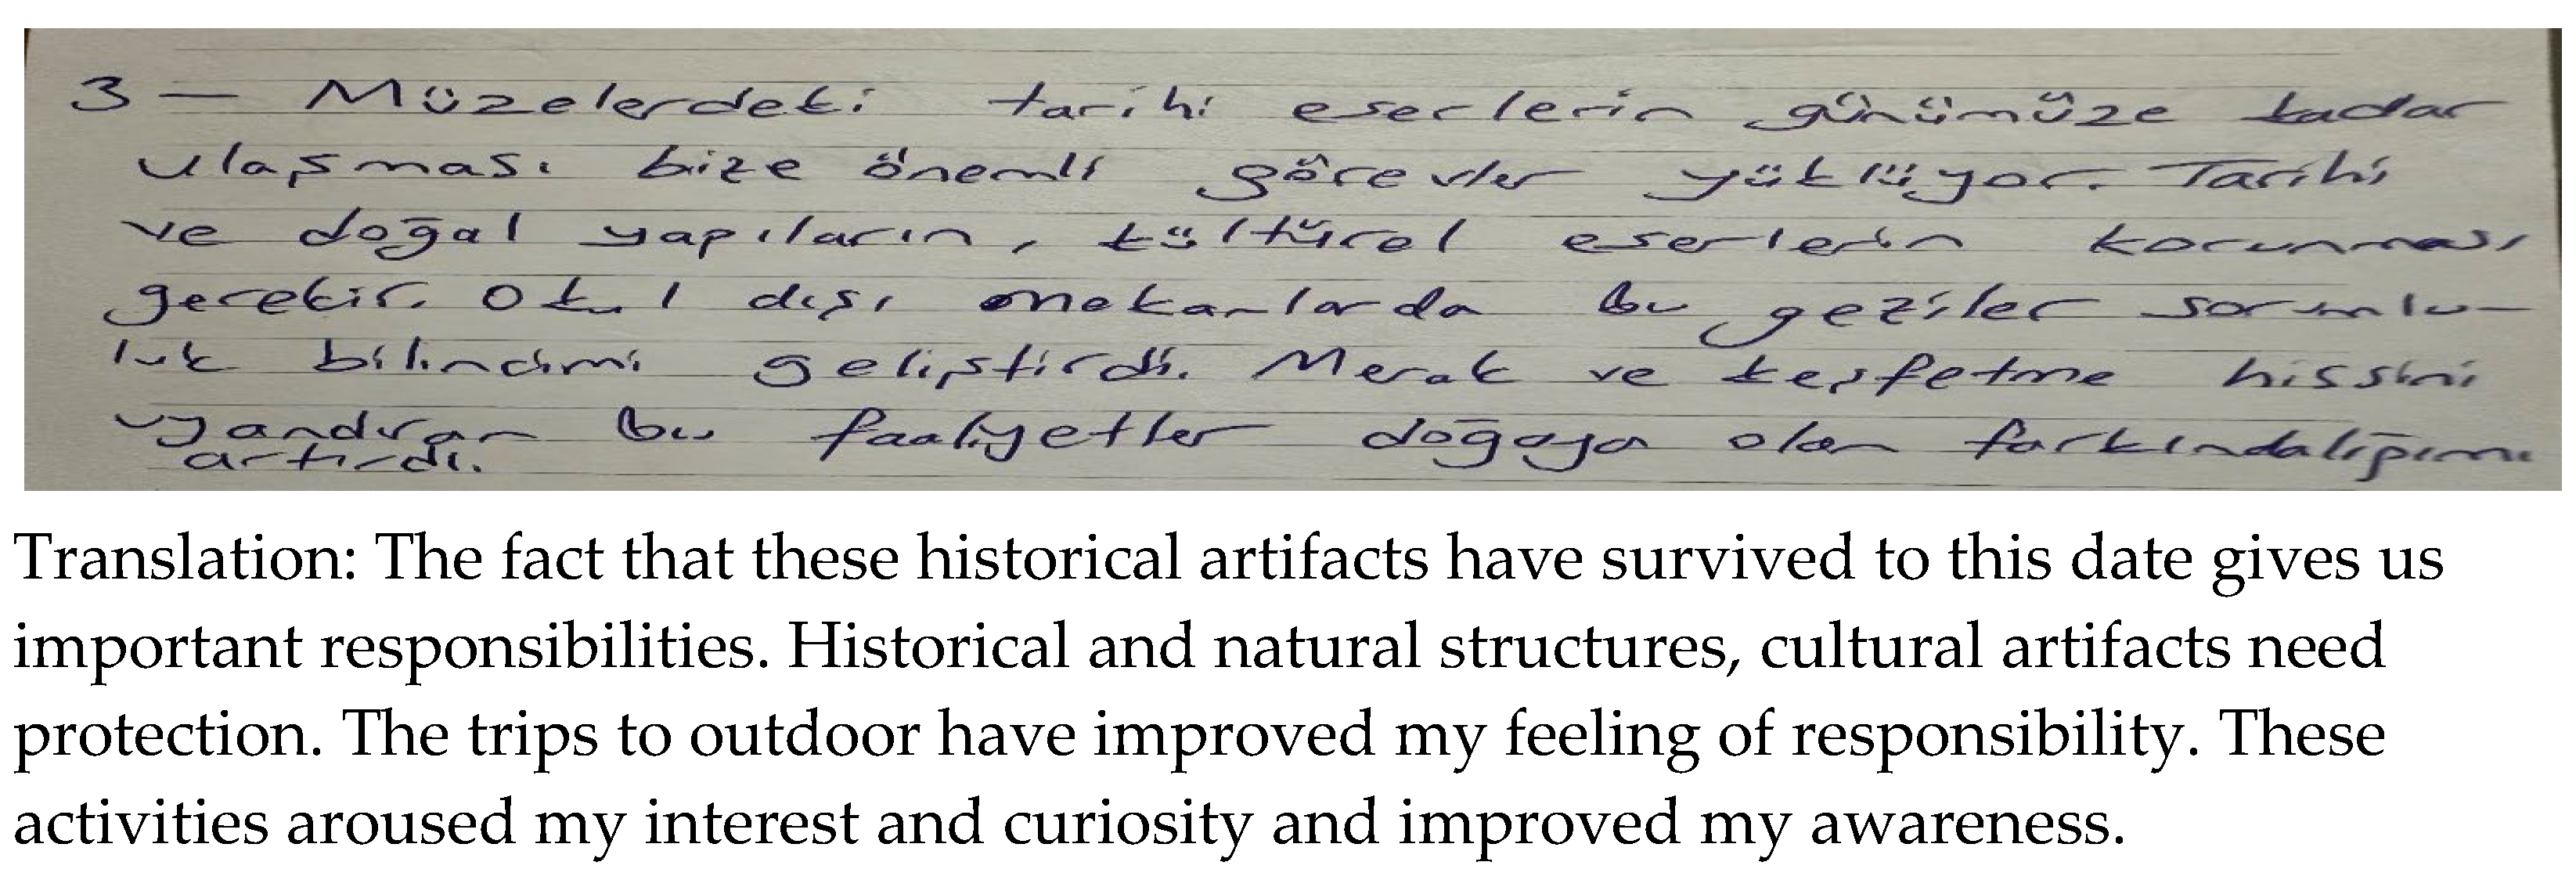 3 — Müzelerdeki tarihi eserlerin günümüze kadar
ulaşması bize önemli görevler yüklüyor. Tarihi
ve doğal yapıların, kültürel eserlerin korunması
gerekir. Okul dışı mekanlarda bu geziler sorumlu-
luk bilincimi geliştirdi. Merak ve keşfetme hissini
uyandıran bu faaliyetler doğaya olan farkındalığımı
artırdı.
Translation: The fact that these historical artifacts have survived to this date gives us
important responsibilities. Historical and natural structures, cultural artifacts need
protection. The trips to outdoor have improved my feeling of responsibility. These
activities aroused my interest and curiosity and improved my awareness.